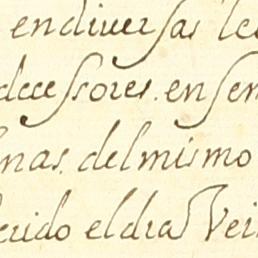 en diuersas le
decessores. en sem
nas. del mismo
erido el dia Vei